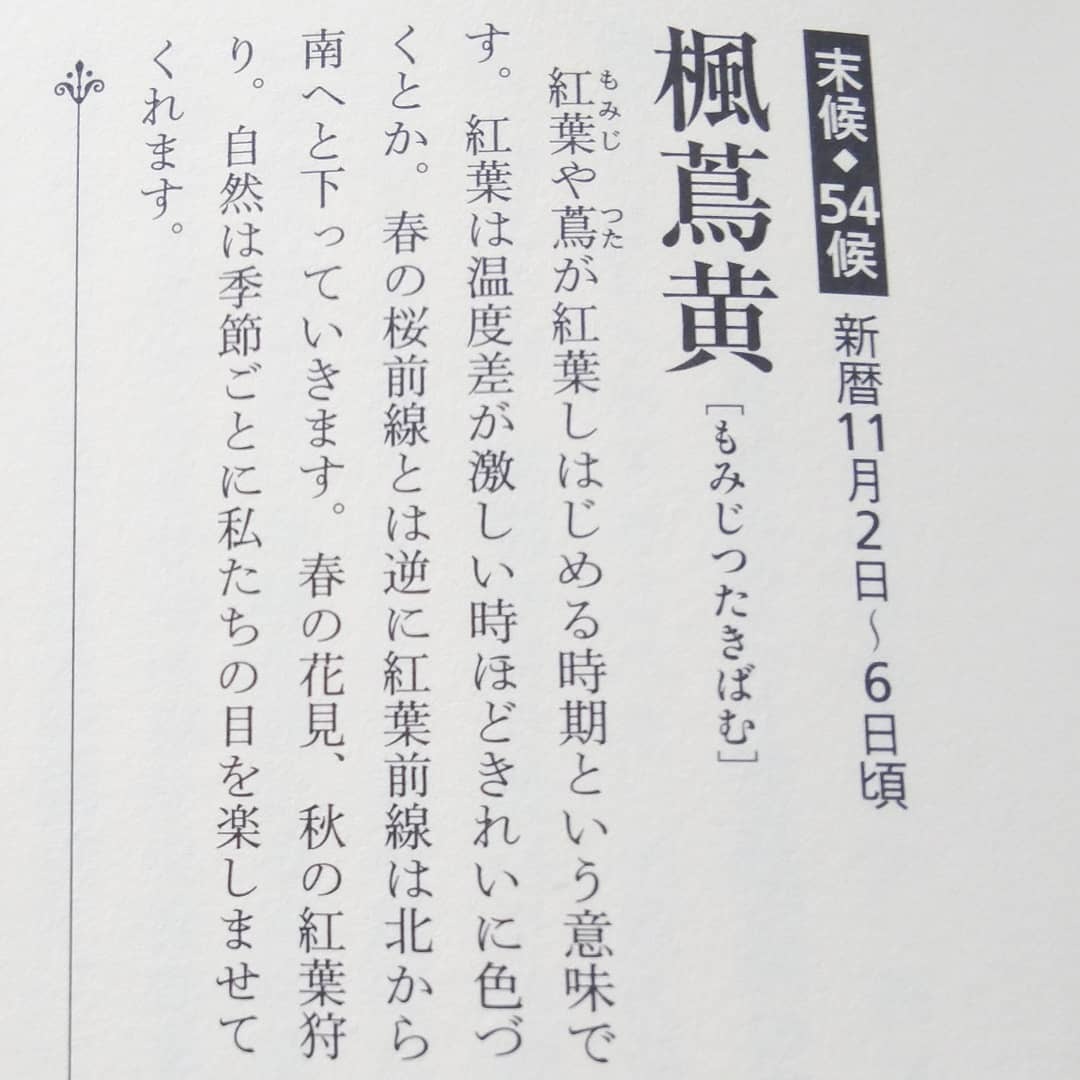 末候◆54候 新暦11月2日〜6日頃
楓蔦黄［もみじつたきばむ］
もみじ つた
紅葉や蔦が紅葉しはじめる時期という意味で
す。紅葉は温度差が激しい時ほどきれいに色づ
くとか。春の桜前線とは逆に紅葉前線は北から
南へと下っていきます。春の花見、秋の紅葉狩
り。自然は季節ごとに私たちの目を楽しませて
くれます。